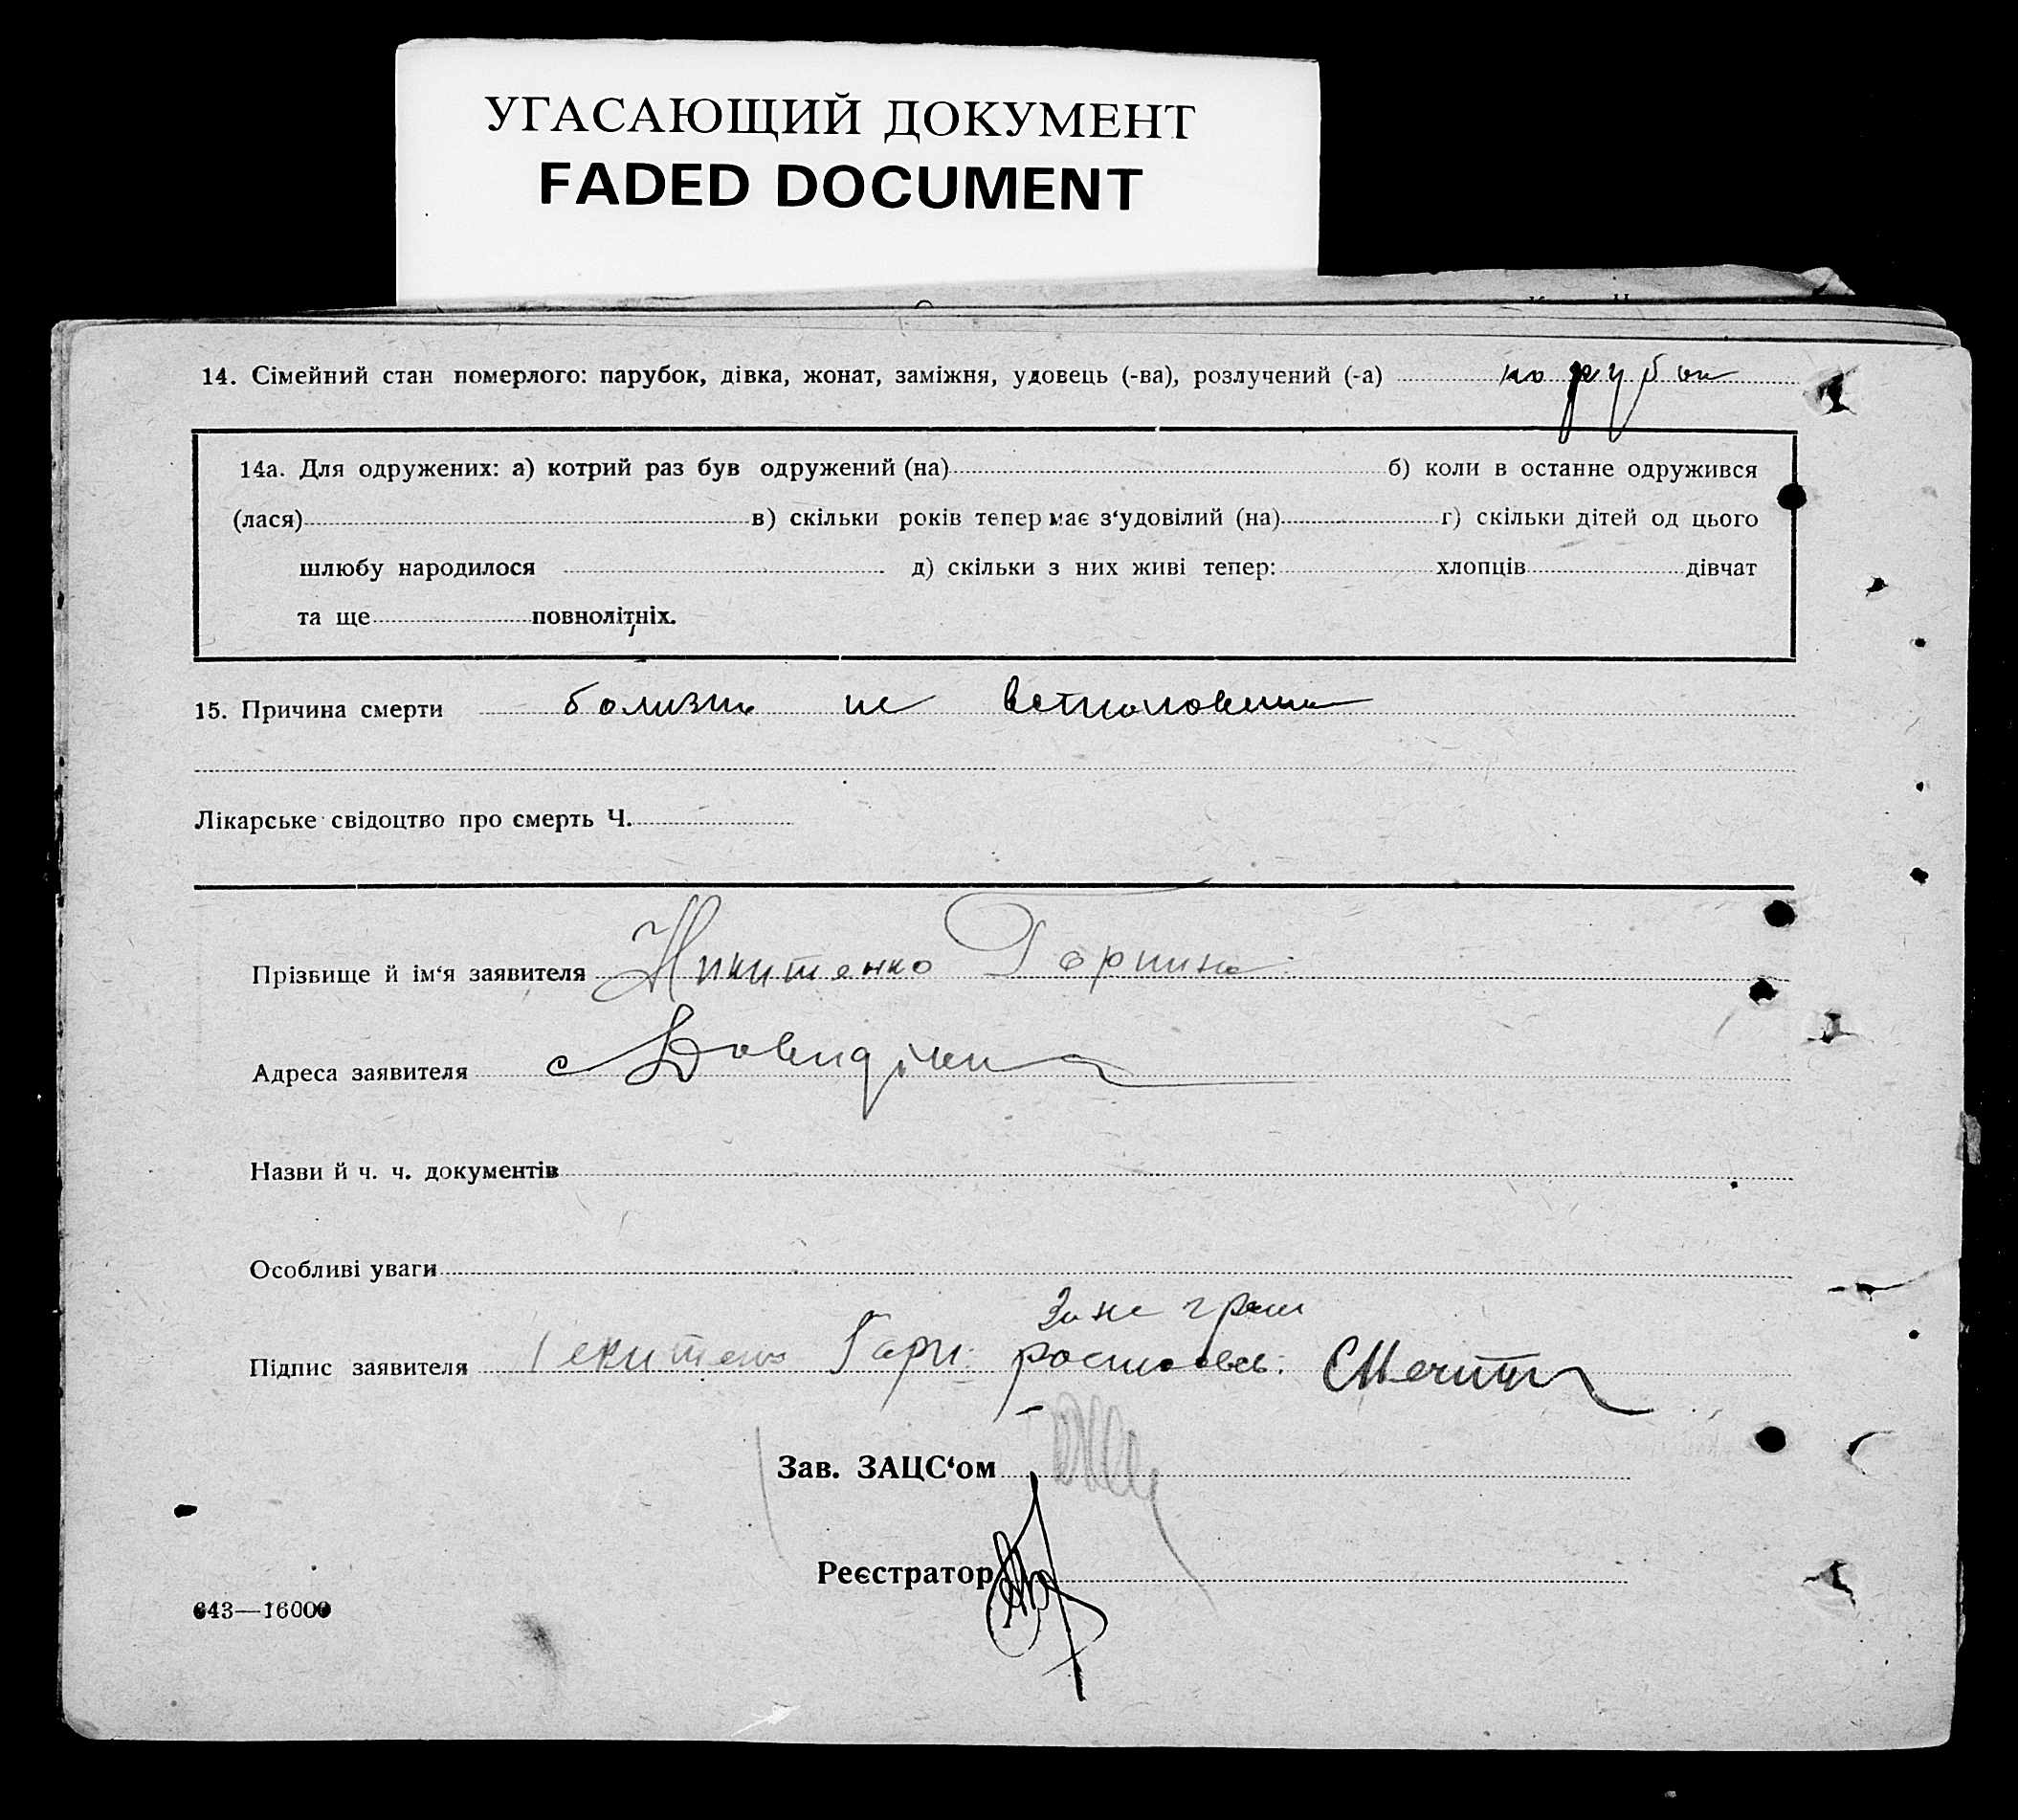 УГАСАЮЩИЙ ДОКУМЕНТ
FADED DOCUMENT
14. Сімейний стан померлого: парубок, дівка, жонат, заміжня, удовець (-ва), розлучений (-а) парубок
14а. Для одружених: а) котрий раз був одружений (на) б) коли в останне одружився
(лася) в) скільки років тепер має з‘удовілий (на) г) скільки дітей од цього
шлюбу народилося д) скільки з них живі тепер: хлопців дівчат
та ще повнолітніх.
15. Причина смерти болизнь не встановлена
Лікарське свідоцтво про смерть Ч.
Прізвище й ім‘я заявителя Никитенко Горпина
Адреса заявителя с Довидівка
Назви й ч. ч. документів
Особливі уваги
За не грам
Підпис заявителя Гарп. росписавсь.
Зав. ЗАЦС‘ом
Реєстратор
643—16000